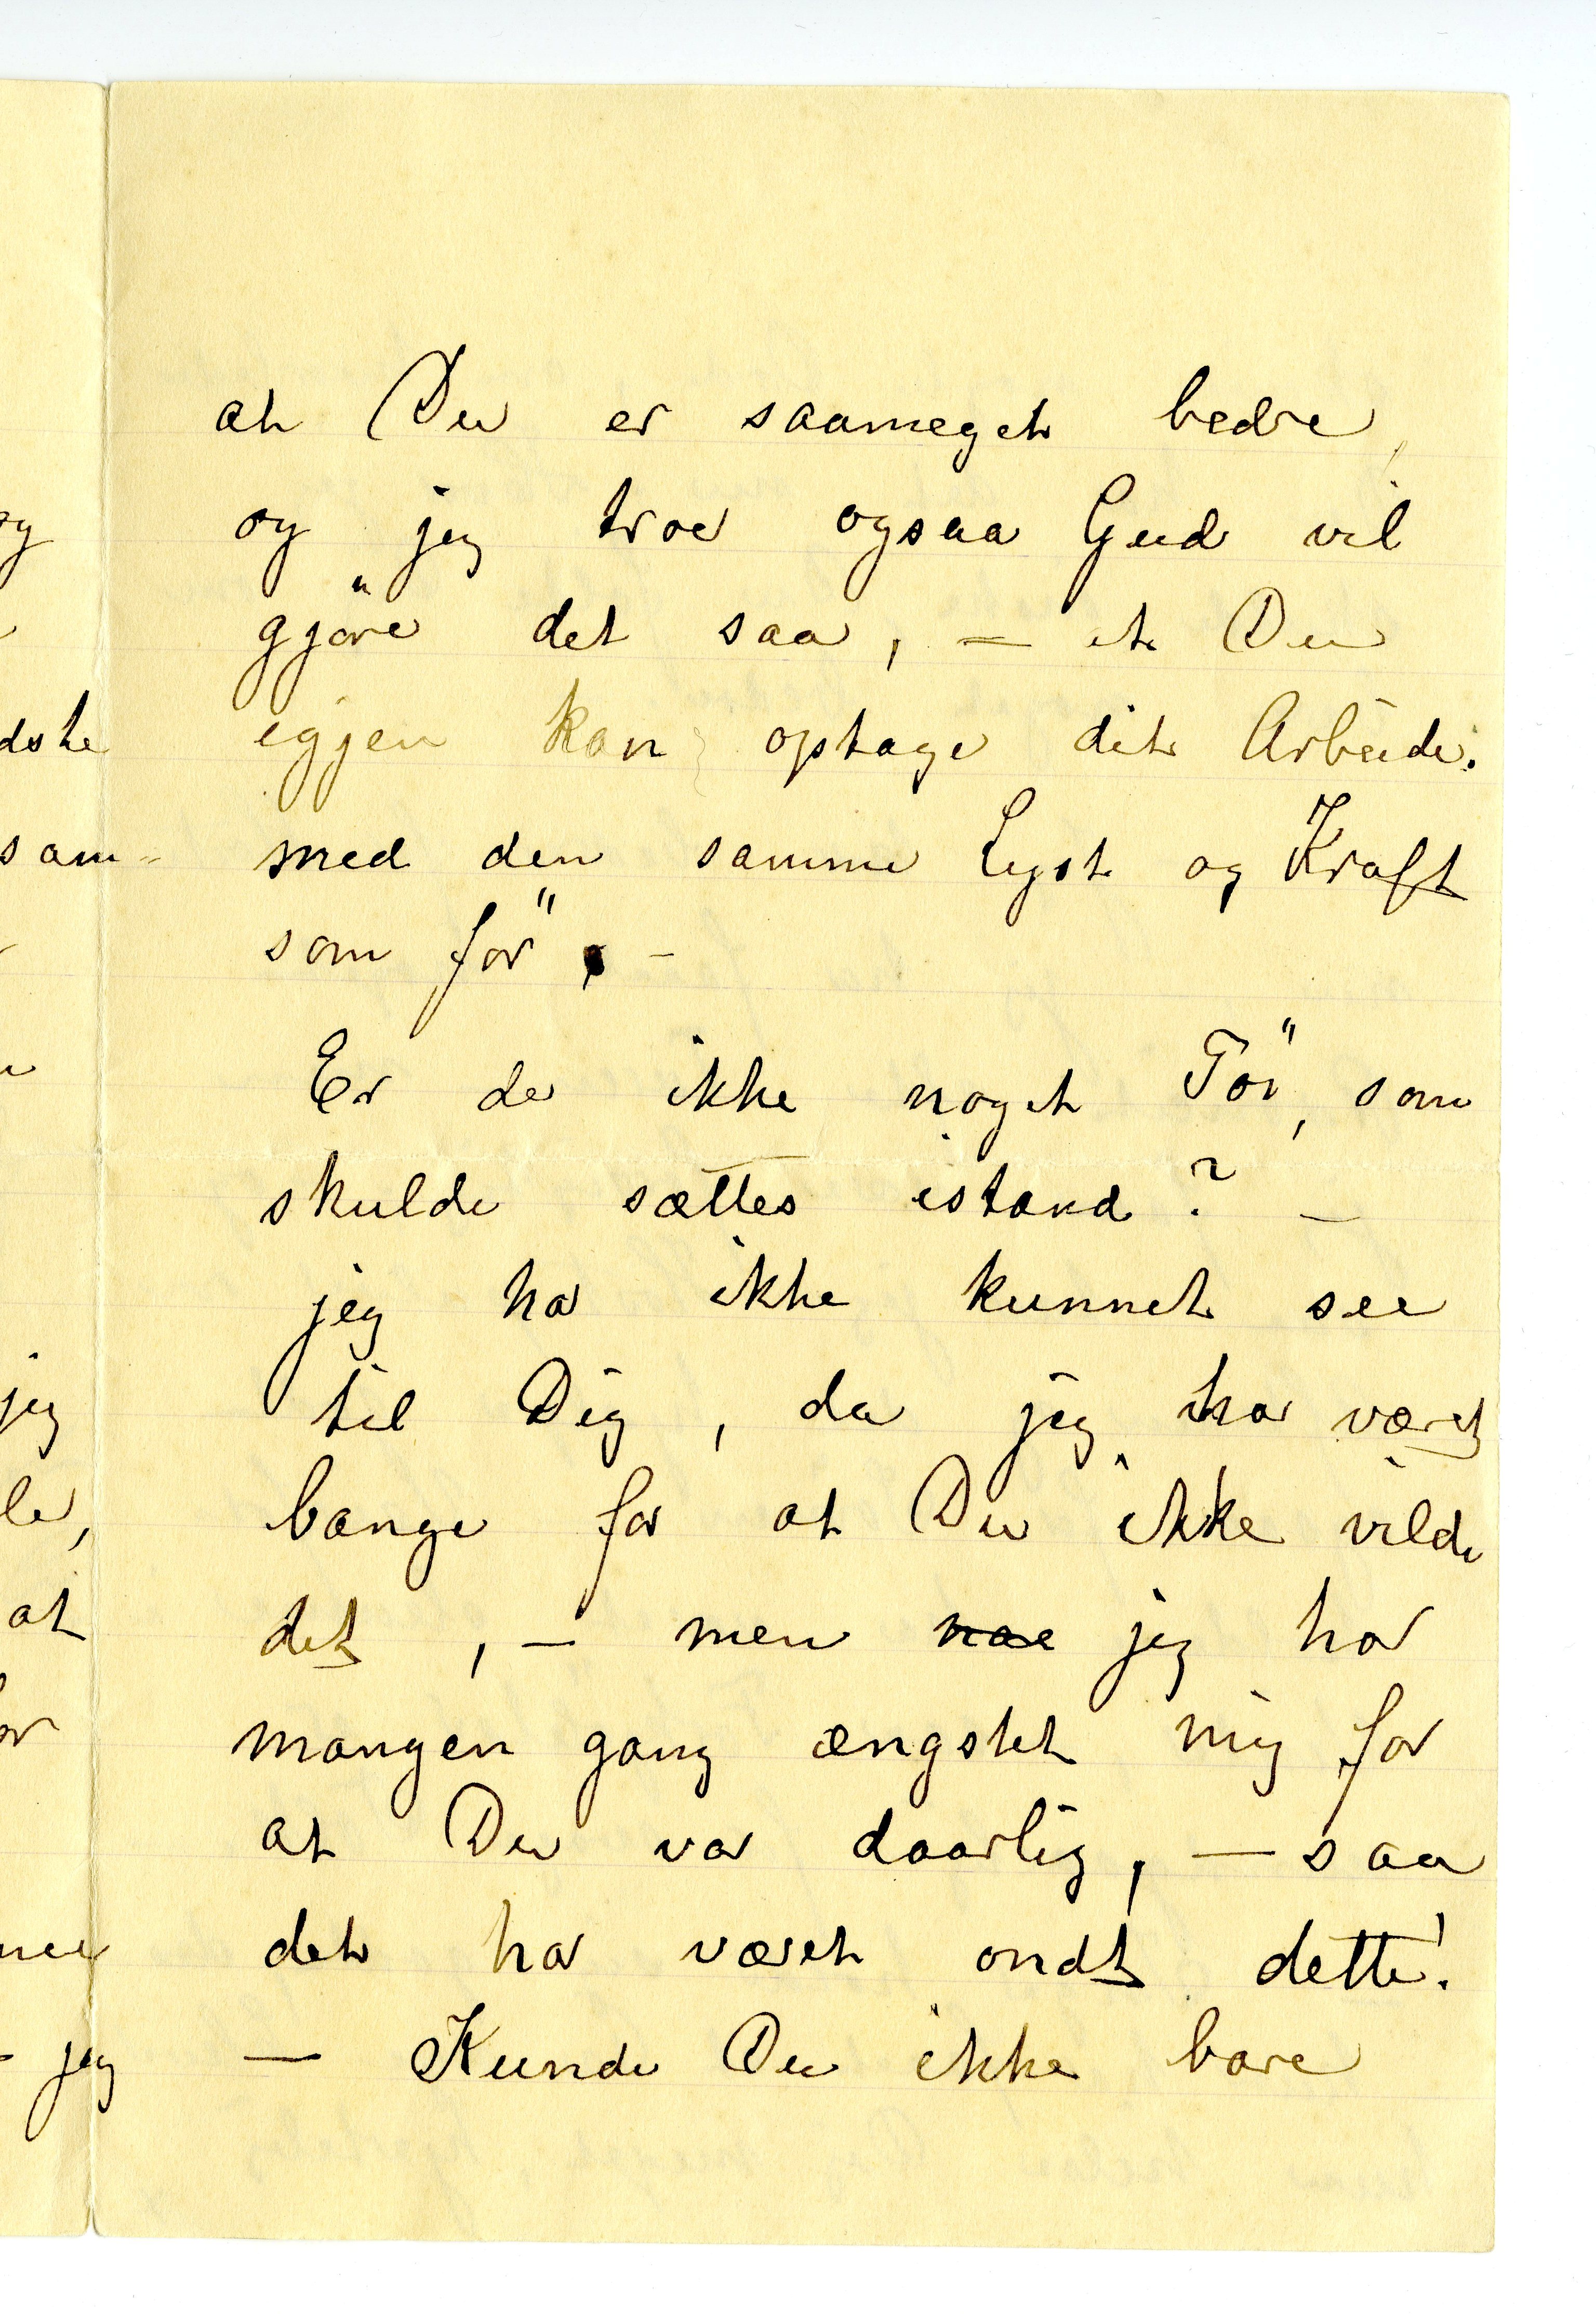 at Du er saameget bedre,
og jeg troer ogsaa Gud vil
gjöre det saa, – at Du
igjen kan optage dit Arbeide.
med den samme Lyst og Kraft
som för, –
Er der ikke noget Töi, som
skulde sættes istand? –
jeg har ikke kunnet see
til Dig, da jeg har været
bange for at Du ikke vilde
det, – men jeg har
mangen gang ængstet mig for
at Du var daarlig, – saa
det har været ondt dette!
– Kunde Du ikke bare
og
dste
sam-
jeg
le,
at
jeg